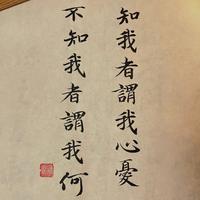 知我者謂我心憂
不知我者謂我何